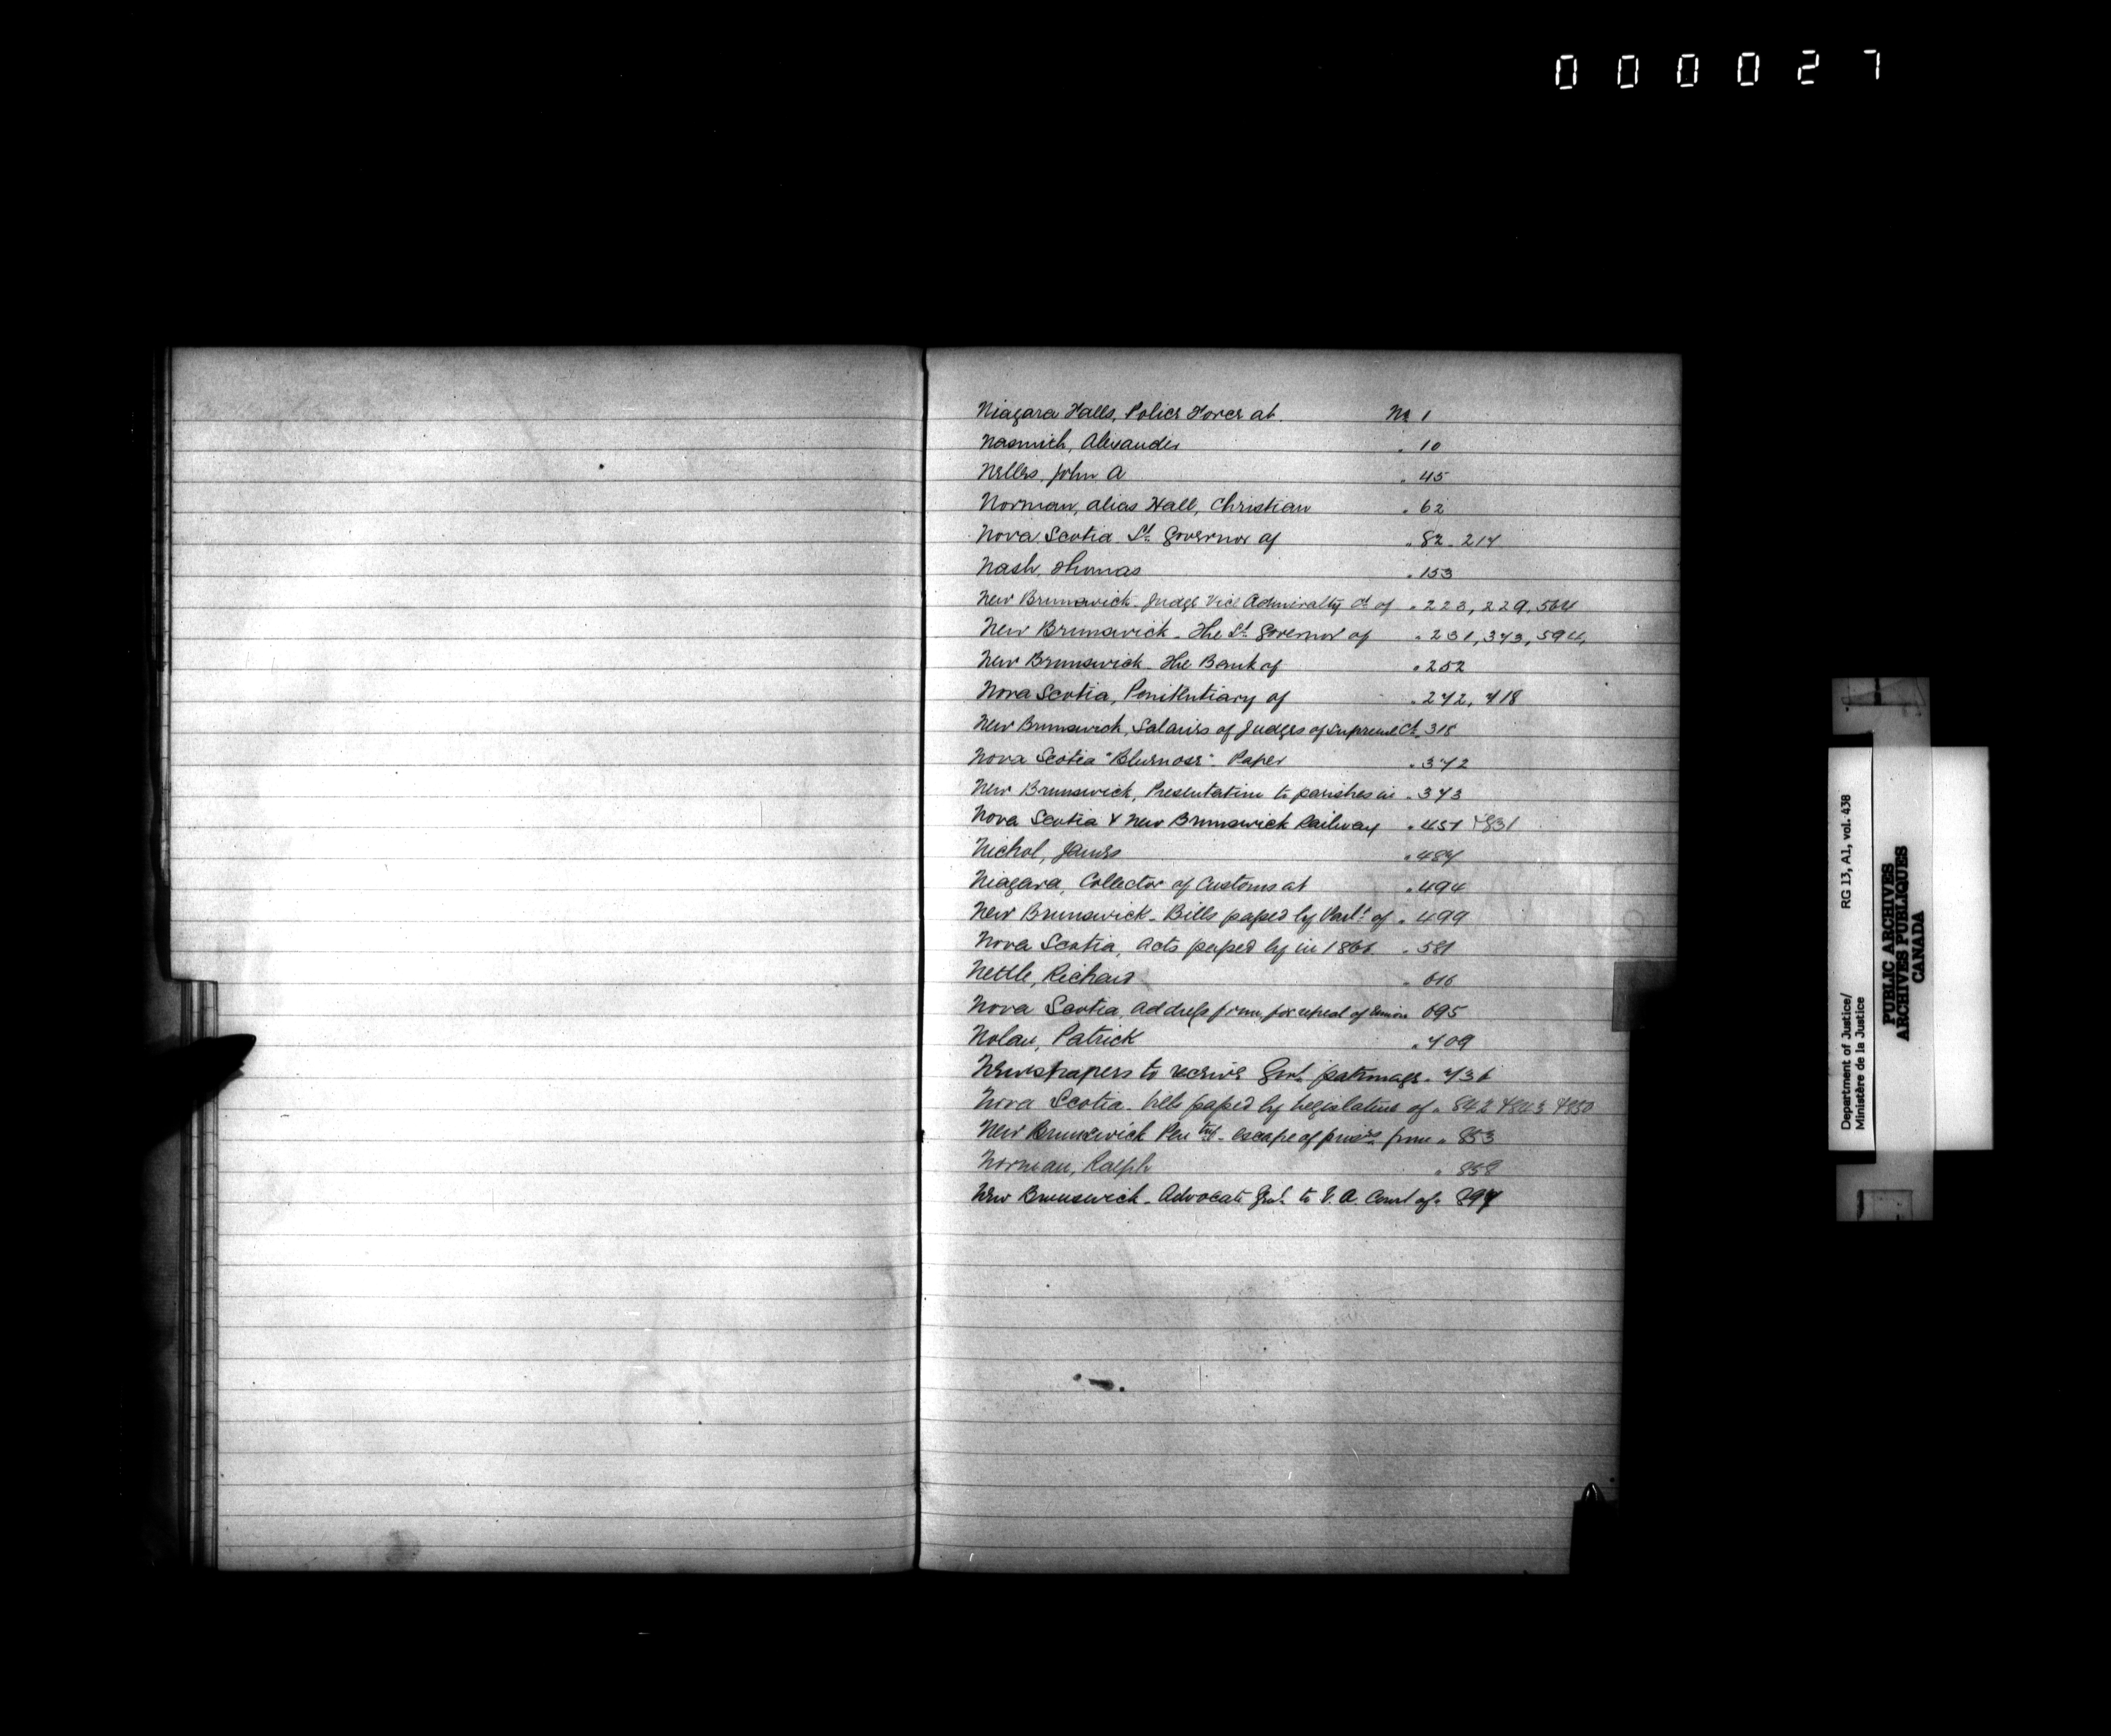 000027
Niagara Falls, Police Force at No 1
Nasmith, Alexander " 10
Nelles, John A " 45
Norman, alias Hall, Christian " 62
Nova Scotia Lt. Governor of " 82. 217
Nash, Thomas " 153
New Brunswick. Judge Vice Admiralty Ct of " 223, 229, 564
New Brunswick. The Lt. Governor of " 231, 373, 594,
New Brunswick. The Bank of " 252
Nova Scotia, Penitentiary of " 272, 718
New Brunswick, Salaries of Judges of Supreme Ct.
Nova Scotia "Bluenose" Paper " 372
New Brunswick, Presentation to parishes in " 373
Nova Scotia & New Brunswick Railway " 457 & 831
Nichol, James " 487
Niagara, Collector of Customs at " 494
New Brunswick. Bills passed by Parlt. of " 499
Nova Scotia, Acts passed by in 1866. " 581
Nettle, Richard " 616
Nova Scotia, Address from, for repeal of Union 695
Nolan, Patrick " 709
Newspapers to receive Govt. patronage. " 736
Nova Scotia. bills passed by Legislature of " 842 & 843 & 850
New Brunswick Pen'try. escape of pris'rs from " 853
Norman, Ralph " 858
New Brunswick. Advocate Genl. to V. A. Court of " 897
Department of Justice/
Ministère de la Justice
RG 13, A1, vol. 438
PUBLIC ARCHIVES
ARCHIVES PUBLIQUES
CANADA